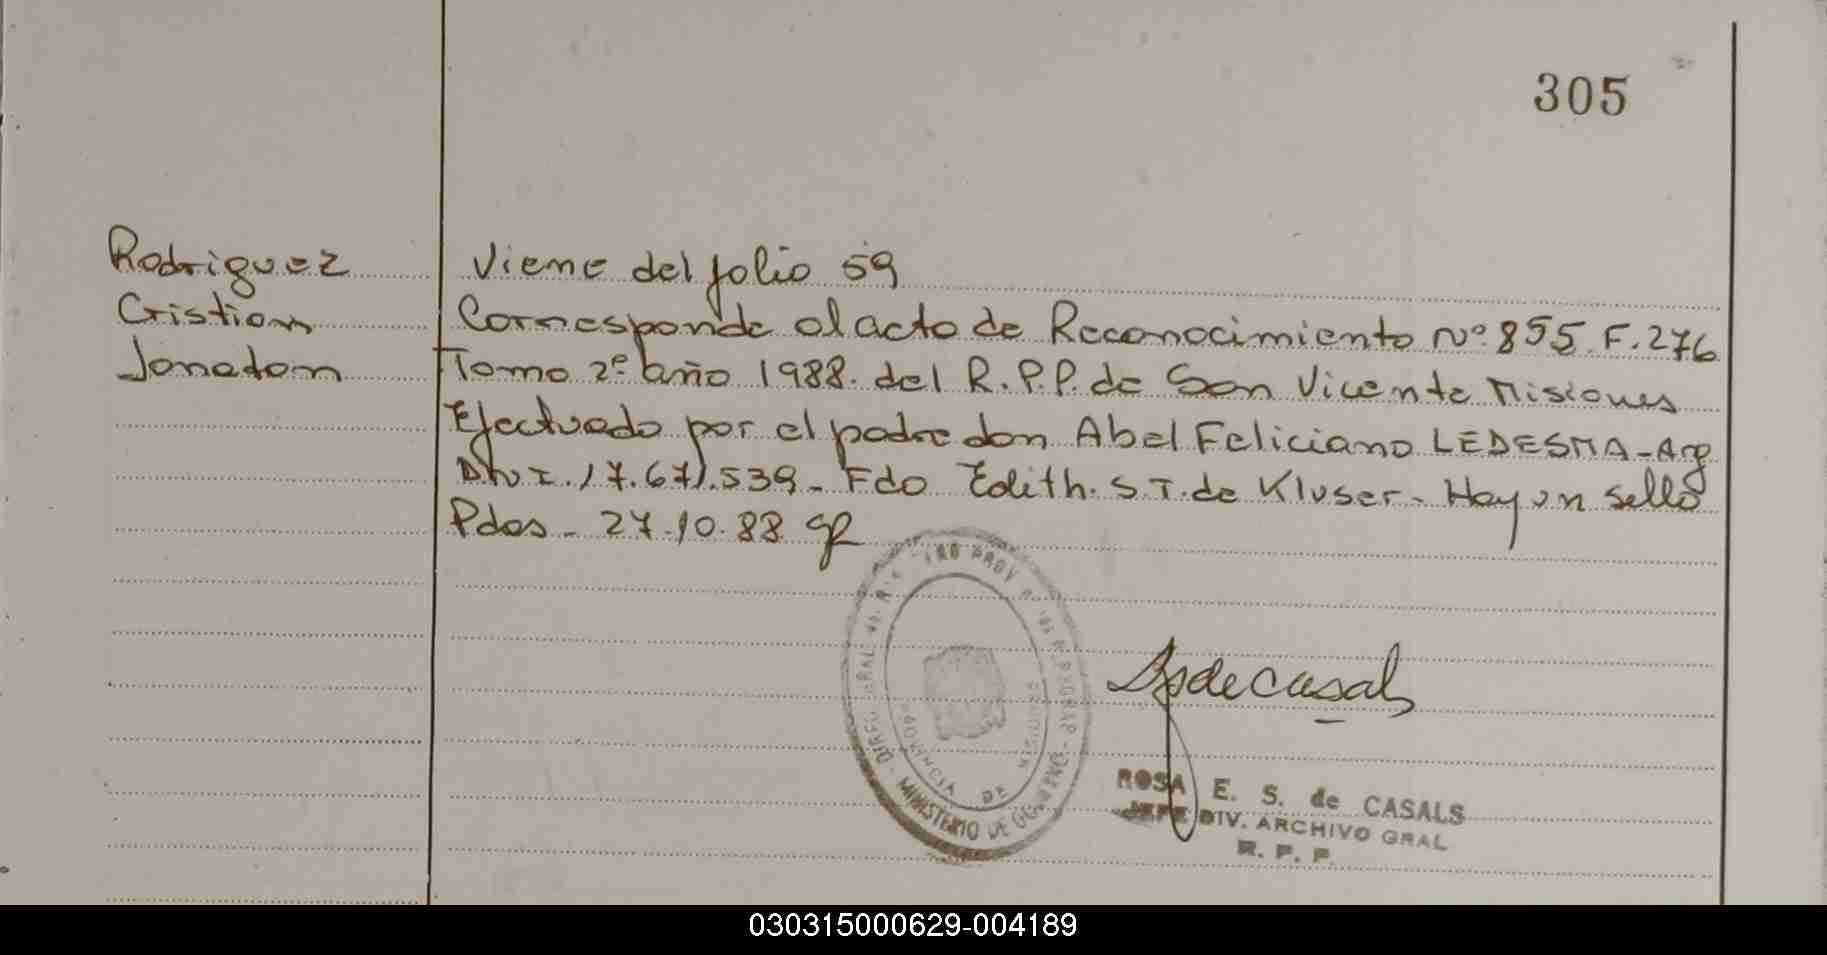 305
Rodriguez
Cristian
Jonatan
Viene del folio 59
Corresponde al acta de Reconocimiento Nº 855 F. 276
Tomo 2º año 1988. del R.P.P. de San Vicente Misiones
Efectuado por el padre don Abel Feliciano LEDESMA-Arg
DNI. 17.671.539 - Fdo Edith. S.T. de Kluser - Hay un sello
Pdas - 27.10.88
PROVINCIA DE
MINISTERIO DE
ROSA E. S. de CASALS
JEFE DIV. ARCHIVO GRAL
R. P. P.
030315000629-004189